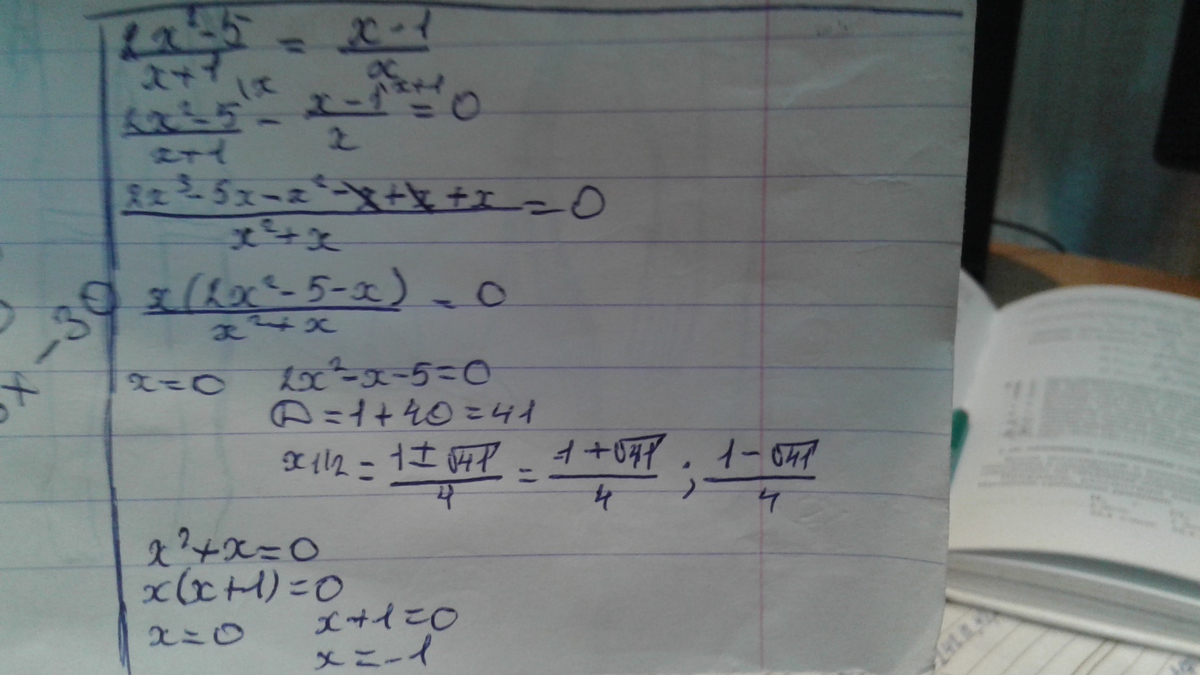 2x²-5/x+1 = x-1/x
2x²-5/x+1 \x - x-1/x \x+1 = 0
2x³-5x-x²-x+x+x/x²+x = 0
x(2x²-5-x)/x²+x = 0
x=0 2x²-x-5=0
D=1+40=41
x1/2 = 1±√41/4 = 1+√41/4 ; 1-√41/4
x²+x=0
x(x+1)=0
x=0 x+1=0
x=-1